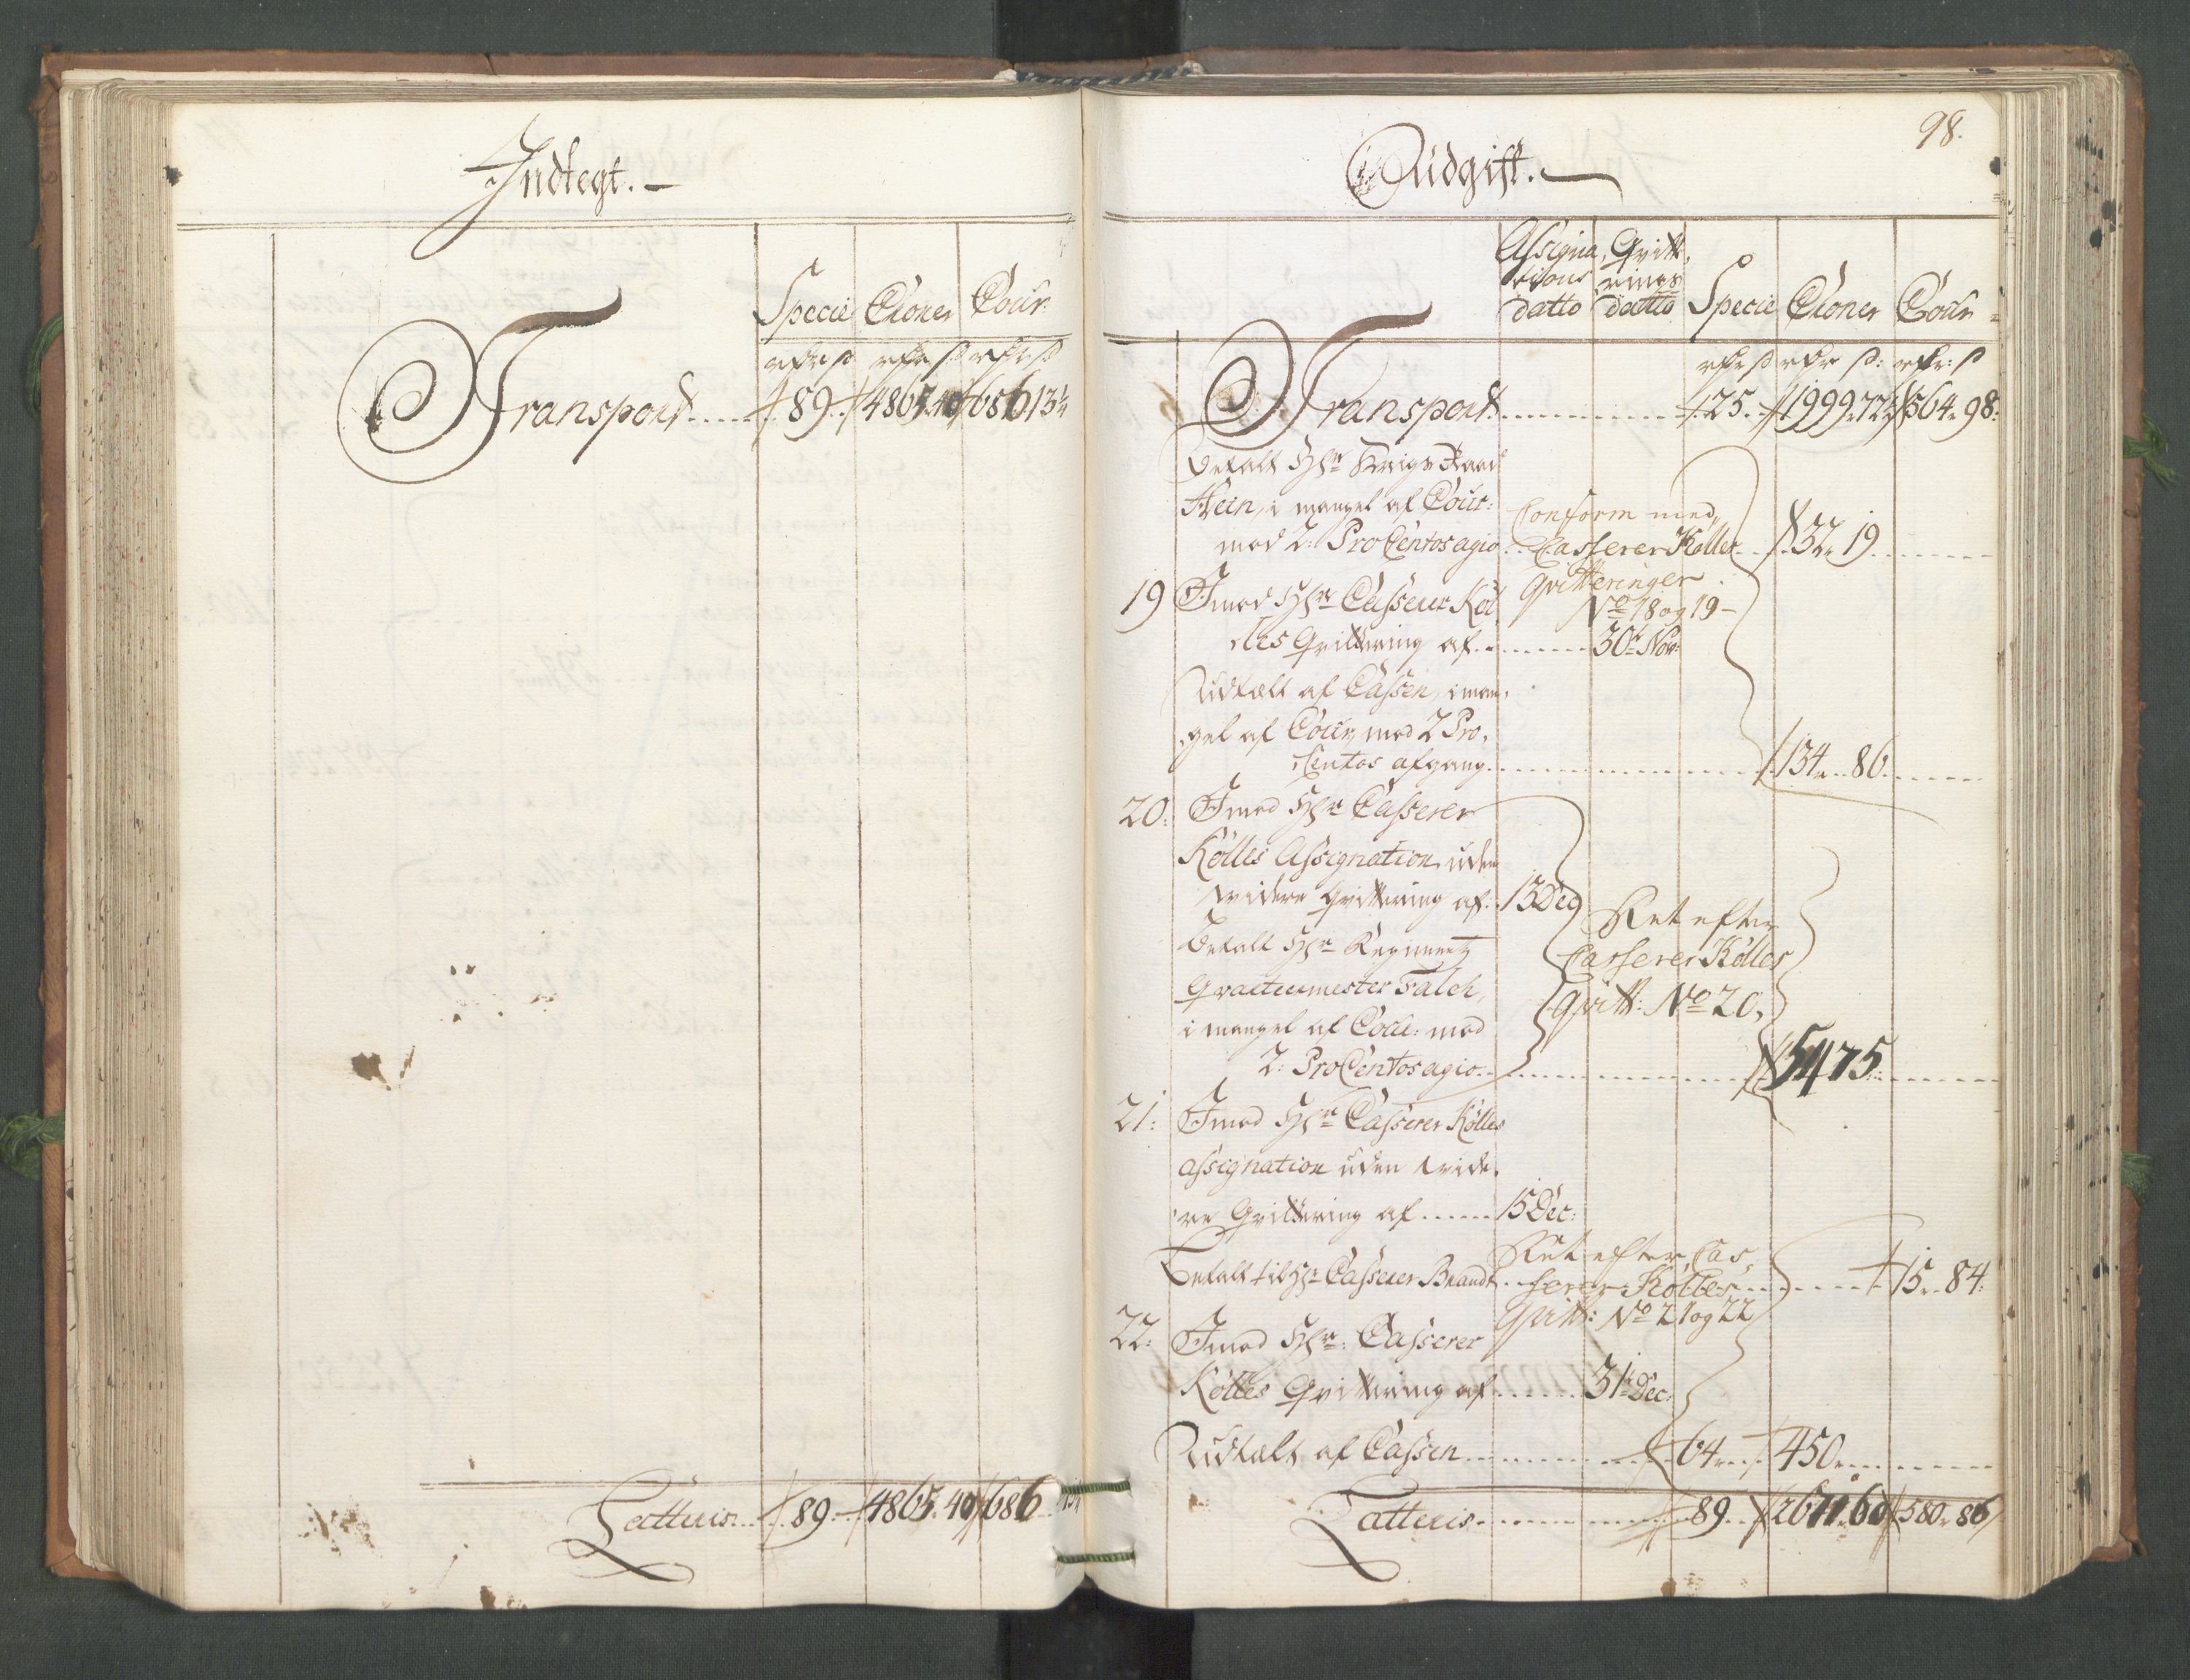 Indtegt.
Specie Croner Cour:
rdr ß rdr ß rdr ß
Transport ..... 89. 4865. 40 686 13¼
Latteris... 89. 4865. 40 686
98.
Udgift.
Assigna,
tions
datto
Qvitt,
rings
datto
Specie Croner Cour
rdr ß rdr ß: rdr: ß
Transport ..... 25. 1999. 72½ 564. 98.
Betalt Hr Krigs Raad
Hein, i mangel af Cour:
med 2: Pro Centos agio
Conform med
Casserer Kølles
Qvitteringer
No 18 og 19
32. 19.
19 Imod Hr Casserer Køl
les Qvittering af ..... 30t Nov:
Udtalt af Cassen, i man,
gel af Cour, med 2 Pro,
Centos afgang ..... 134. 86.
20: Imod Hr Casserer
Kølles Assignation uden
widere Qvittering af. 13 Dec
Betalt Hr Regiments
Qvarteermester Falch,
i mangel af Cour: med
2: Pro Centos agio.
Ret efter
Casserer Kølles
Qvitt: No 20,
5475
21: Imod Hr Casserer Kølles
assignation uden wide,
re Qvittering af ...... 15 Dec:
Betalt til Hr Casserer Brandt
Ret efter Cas,
serer Kølles
Qvitt: No 21 og 22
15. 84.
22: Imod Hr: Casserer
Kølles Qvittering af ..... 31t Dec:
Udtalt af Cassen ..... 64. 450.
Latteris ..... 89. 2671. 60 580. 86